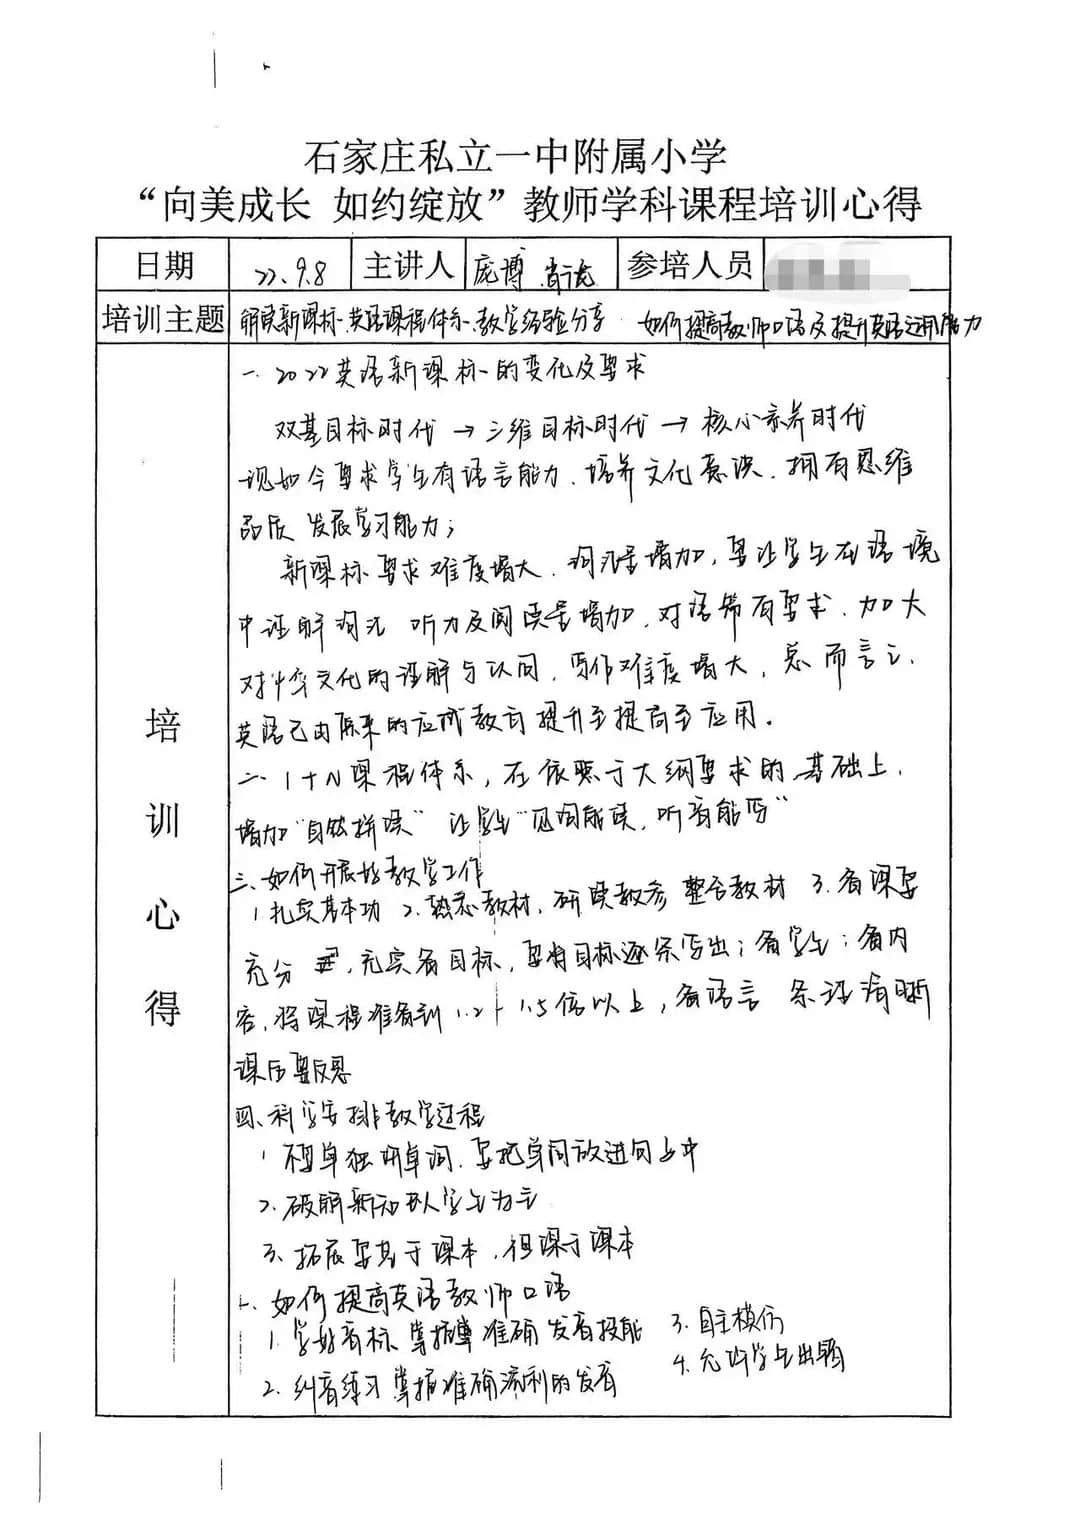 石家庄私立一中附属小学
“向美成长 如约绽放”教师学科课程培训心得
日期 22.9.8 主讲人 庞博 参培人员
培训主题 解读新课标、英语课程体系、教学经验分享 如何提高教师口语及提升英语运用能力
培训心得
一、2022英语新课标的变化及要求
双基目标时代→三维目标时代→核心素养时代
现如今要求学生有语言能力、培养文化意识、拥有思维
品质、发展学习能力；
新课标要求难度增大、词汇量增加，要让学生在语境
中理解词汇 听力及阅读量增加，对语篇有要求，加大
对中华文化的理解与认同，写作难度增大，总而言之、
英语已由原来的应试教育提升至提高至应用。
二、1+N课程体系，在依照于大纲要求的基础上，
增加“自然拼读”让学生“见词能读，听音能写”
三、如何开展好教学工作
1.扎实基本功 2.熟悉教材，研读教参 整合教材 3.备课要
充分，充实备目标，要将目标逐条写出；备学生；备内
容，将课程准备到1.2-1.5倍以上，备语言 条理清晰
课后要反思
四、科学安排教学过程
1 不要单独讲单词，要把单词放进句子中
2.破解新知 以学生为主
3.拓展要基于课本，但深于课本
五、如何提高英语教师口语
1.学好音标 掌握准确发音技能 3.自主模仿
2.纠音练习 掌握准确流利的发音 4.允许学生出错